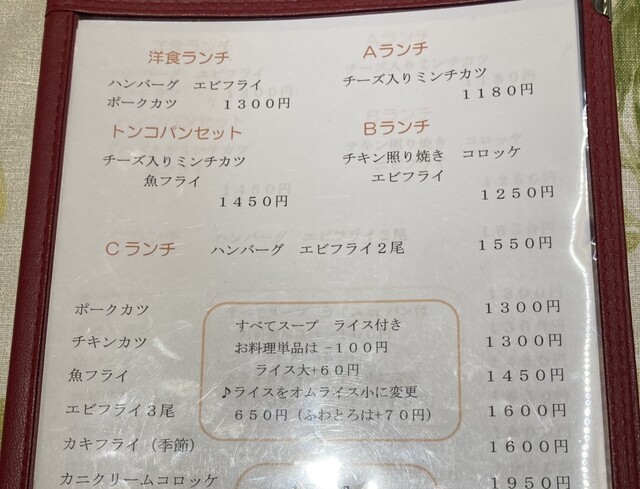 洋食ランチ
ハンバーグ　エビフライ
ポークカツ　１３００円
Ａランチ
チーズ入りミンチカツ
１１８０円
トンコパンセット
チーズ入りミンチカツ
魚フライ
１４５０円
Ｂランチ
チキン照り焼き　コロッケ
エビフライ
１２５０円
Ｃランチ　ハンバーグ　エビフライ２尾　１５５０円
ポークカツ　１３００円
チキンカツ　１３００円
魚フライ　１４５０円
エビフライ３尾　１６００円
カキフライ（季節）　１６００円
カニクリームコロッケ　１９５０円
すべてスープ　ライス付き
お料理単品は −１００円
ライス大+６０円
♪ライスをオムライス小に変更
６５０円（ふわとろは+７０円）